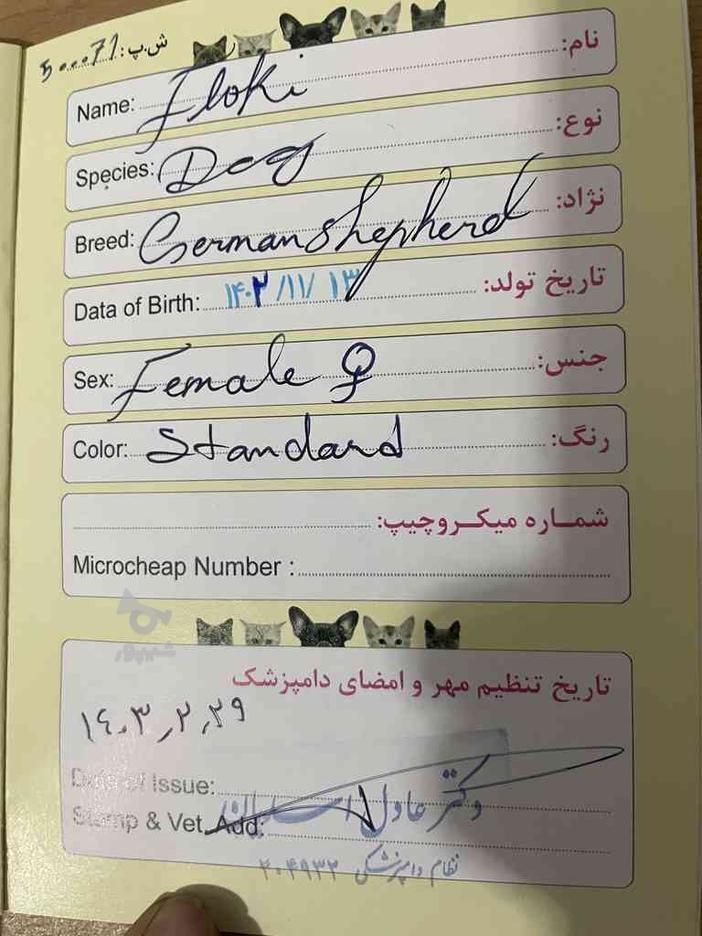 ش.پ: ۵۰۰۰۷۱
نام:
Name: Floki
نوع:
Species: Dog
نژاد:
Breed: German shepherd
تاریخ تولد:
Data of Birth: ۱۴۰۲/۱۱/۱۳
جنس:
Sex: Female ♀
رنگ:
Color: Standard
شماره میکروچیپ:
Microcheap Number :
شیپور
تاریخ تنظیم مهر و امضای دامپزشک
۱۴۰۳,۲,۲۹
Date of Issue:
Stamp & Vet Add:
دکتر عادل
نظام دامپزشکی ۲۰۴۹۳۲